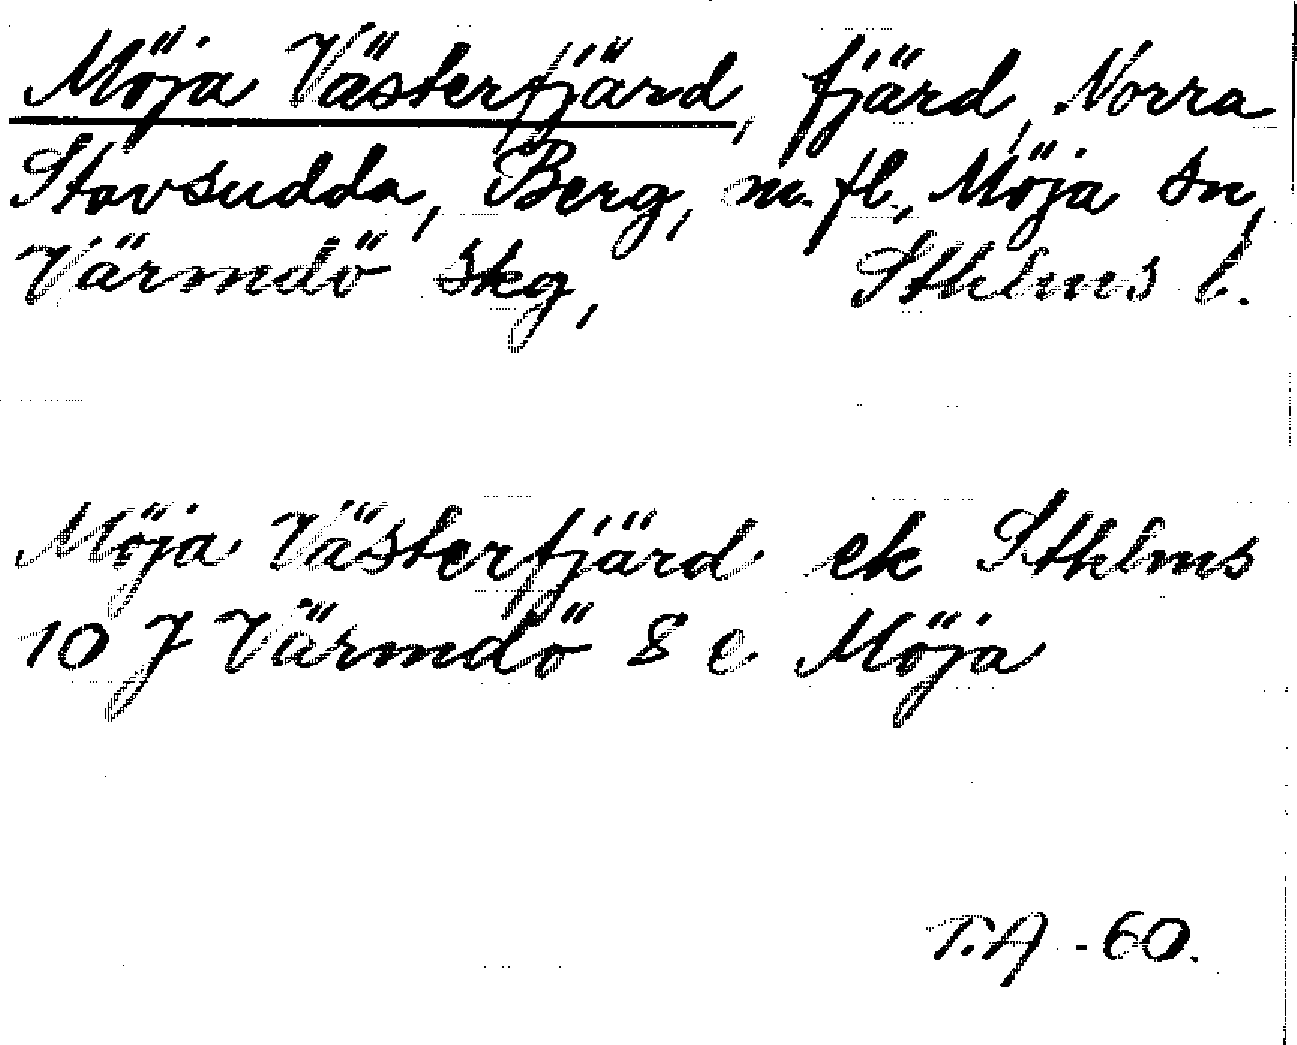 Möja Västerfjärd, fjärd, Norra
Stavsudda, Berg, m. fl., Möja sn,
Värmdö skg, Sthlms l.
Möja Västerfjärd ek Sthlms
10 J Värmdö 8 e Möja
T.A -60.